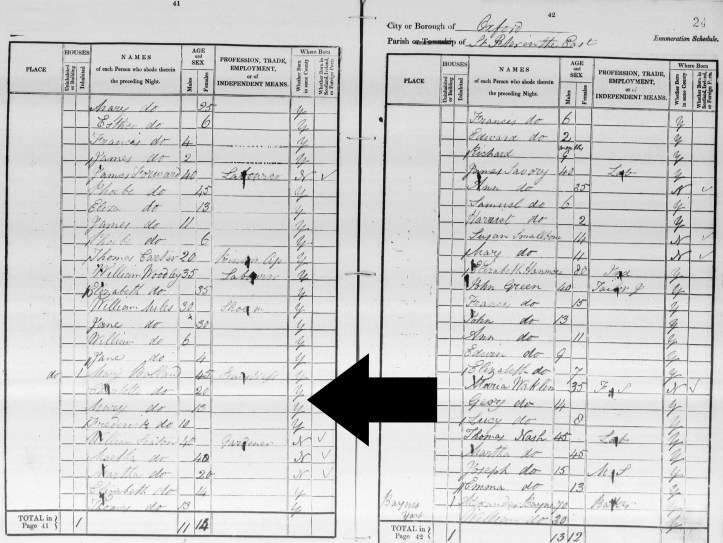 41
PLACE HOUSES Uninhabited or Building Inhabited NAMES of each Person who abode therein the preceding Night. AGE and SEX Males Females PROFESSION, TRADE, EMPLOYMENT, or of INDEPENDENT MEANS. Where Born Whether Born in same County Whether Born in Scotland, Ireland, or Foreign Parts.
Mary do 25 y
Esther do 6 y
Frances do 4 y
James do 2 y
James Forward 40 Labourer N
Phoebe do 45 y
Eliza do 13 y
James do 11 y
Phoebe do 6 y
Thomas 20 Ap y
William Woodby 35 y
Elizabeth do 35 y
William Miles 30 y
Jane do 30 y
William do 6 y
Jane do 4 y
do 1 Mary 45 y
do 20 y
Mary do 12 y
Frederick do 10 y
William 40 Gardener N
Martha do 40 N
Martha do 20 N
Elizabeth do 14 y
13 y
TOTAL in Page 41 1 11 14
42
24
City or Borough of Oxford
Parish or Township of St Peter in the East Enumeration Schedule.
PLACE HOUSES Uninhabited or Building Inhabited NAMES of each Person who abode therein the preceding Night. AGE and SEX Males Females PROFESSION, TRADE, EMPLOYMENT, or of INDEPENDENT MEANS. Where Born Whether Born in same County Whether Born in Scotland, Ireland, or Foreign Parts.
Frances do 6 y
Edward do 2 y
Richard 9 months y
James Savory 40 Lab y
Ann do 35 N
Samuel do 6 y
Harriet do 2 y
Susan Smallbone 14 N
Mary do 11 N
Elizabeth 80 Ind y
John Green 40 y
Frances do 15 y
John do 13 y
Ann do 11 y
Edwin do 9 y
Elizabeth do 7 y
Maria 35 F S N
Georg do 14 y
Lucy do 8 y
Thomas Nash 45 Lab y
Martha do 45 y
Joseph do 15 M S y
Emma do 13 y
Baynes Yard 1 70 y
William do 30 y
TOTAL in Page 42 1 13 12